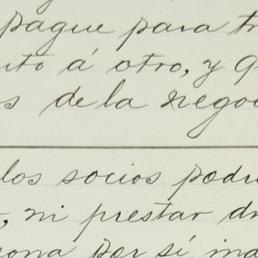 pague para tr
to á otro, y q
s de la negoc
los socios podr
, ni prestar d
ona por sí, ma